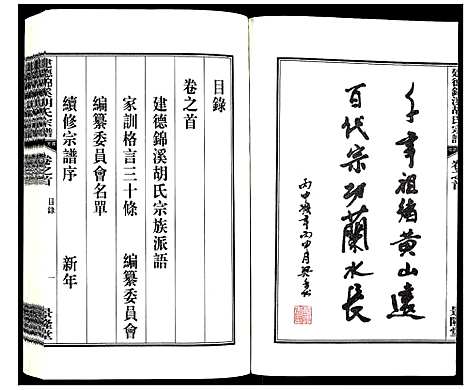 千年祖德黄山遠
百代宗功蘭水長
建德錦溪胡氏宗譜
卷之首
目錄
卷之首
建德錦溪胡氏宗族派語
家訓格言三十條 編纂委員會
編纂委員會名單
續修宗譜序 新年
建德錦溪胡氏宗譜
卷之首
目錄
一
景隆堂